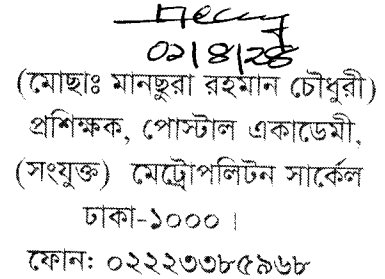 ০১|৪|২৪
(মোছাঃ মানছুরা রহমান চৌধুরী)
প্রশিক্ষক, পোস্টাল একাডেমী,
(সংযুক্ত) মেট্রোপলিটন সার্কেল
ঢাকা-১০০০।
ফোন: ০২২২৩৩৮৫৯৬৮